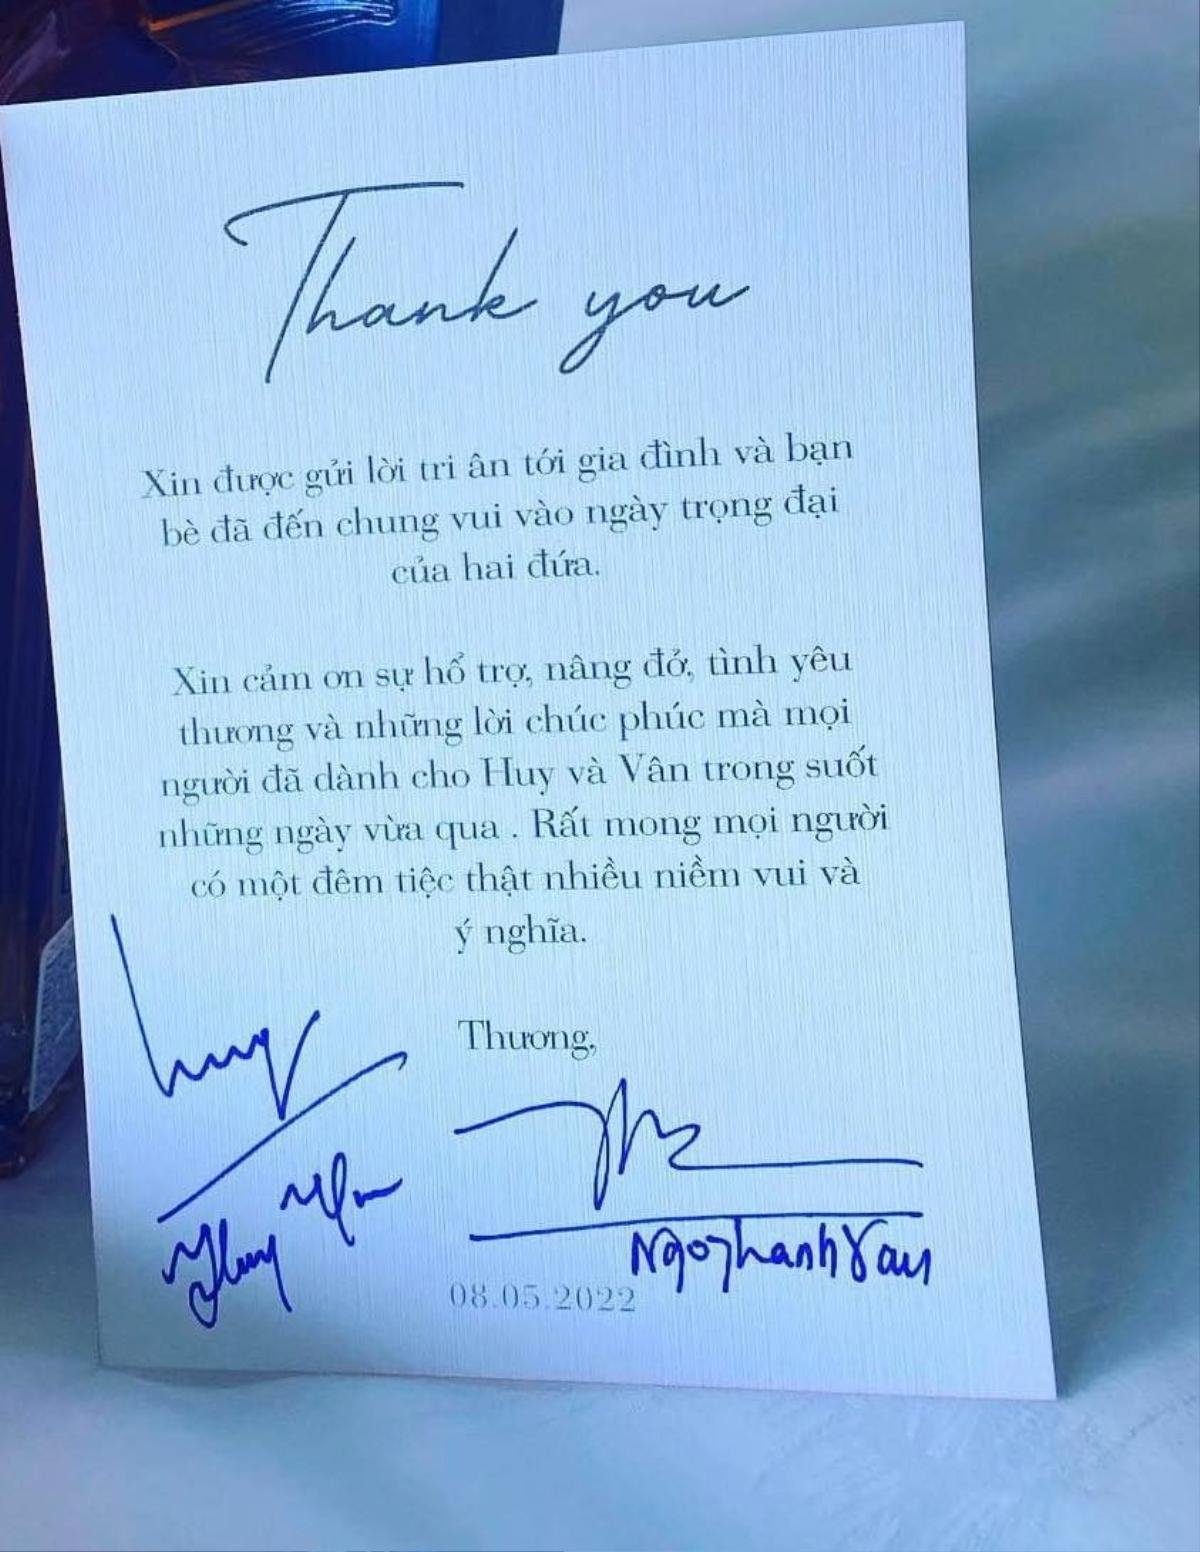 Thank you
Xin được gửi lời tri ân tới gia đình và bạn
bè đã đến chung vui vào ngày trọng đại
của hai đứa.
Xin cảm ơn sự hổ trợ, nâng đở, tình yêu
thương và những lời chúc phúc mà mọi
người đã dành cho Huy và Vân trong suốt
những ngày vừa qua . Rất mong mọi người
có một đêm tiệc thật nhiều niềm vui và
ý nghĩa.
Thương,
Huy
NgoThanhVan
08.05.2022